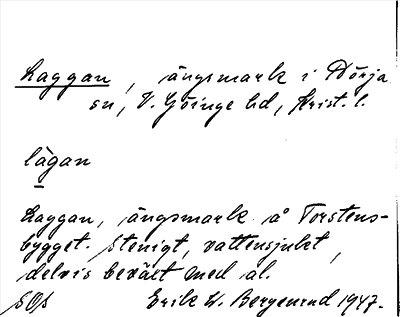 Laggan, ängsmark i Nörja
sn, V. Göinge hd, Krist. l.
làgan
Laggan, ängsmark å Torstens-
bygget. Stenigt, vattensjukt,
delvis beväxt med al.
Erik W. Bergenrud 1947.